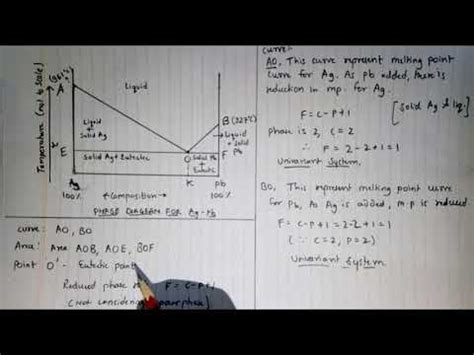 (961°C)
A
Temperature (not to scale)
Liquid
B(327°C)
Liquid
+
Solid Ag
Liquid
+ Solid
Pb
E
Solid Ag + Eutectic
O
Solid Pb
+
Eutectic
F
Ag
100%
← Composition →
K
Pb
100%
PHASE DIAGRAM FOR Ag-Pb
Curve: AO, BO
Area: Area AOB, AOE, BOF
Point 'O' - Eutectic point
Reduced phase F = C-P+1
(Not considering phase)
Curve:
AO, This curve represent melting point
curve for Ag. As Pb added, there is
reduction in mp. for Ag.
F = C-P+1
[Solid Ag & liq.]
phase is 2, C = 2
∴ F = 2-2+1 = 1
Univariant System.
BO, This represent melting point curve
for Pb, As Ag is added, m.p is reduced
F = C-P+1 = 2-2+1 = 1
(∵ C=2, P=2)
Univariant System